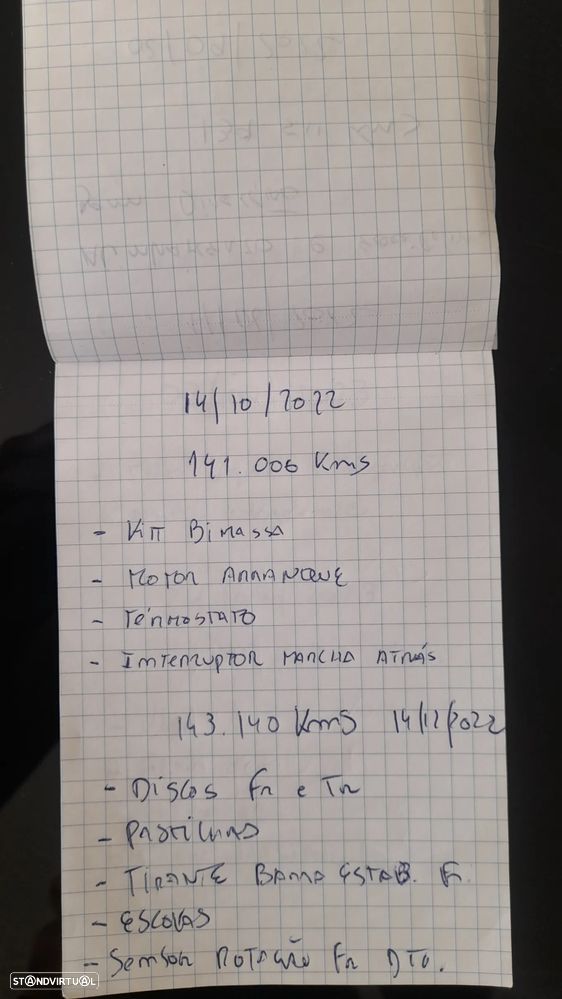 14/10/2022
141.006 Kms
- Kit Bimassa
- Motor Arranque
- Térmostato
- Imterruptor marcha atrás
143.140 Kms 14/12/2022
- Discos Fr e Tr
- Pastilhas
- Tirante Barra Estab. Fr.
- Escovas
- Semsor Rotação Fr Dto.
STANDVIRTUAL